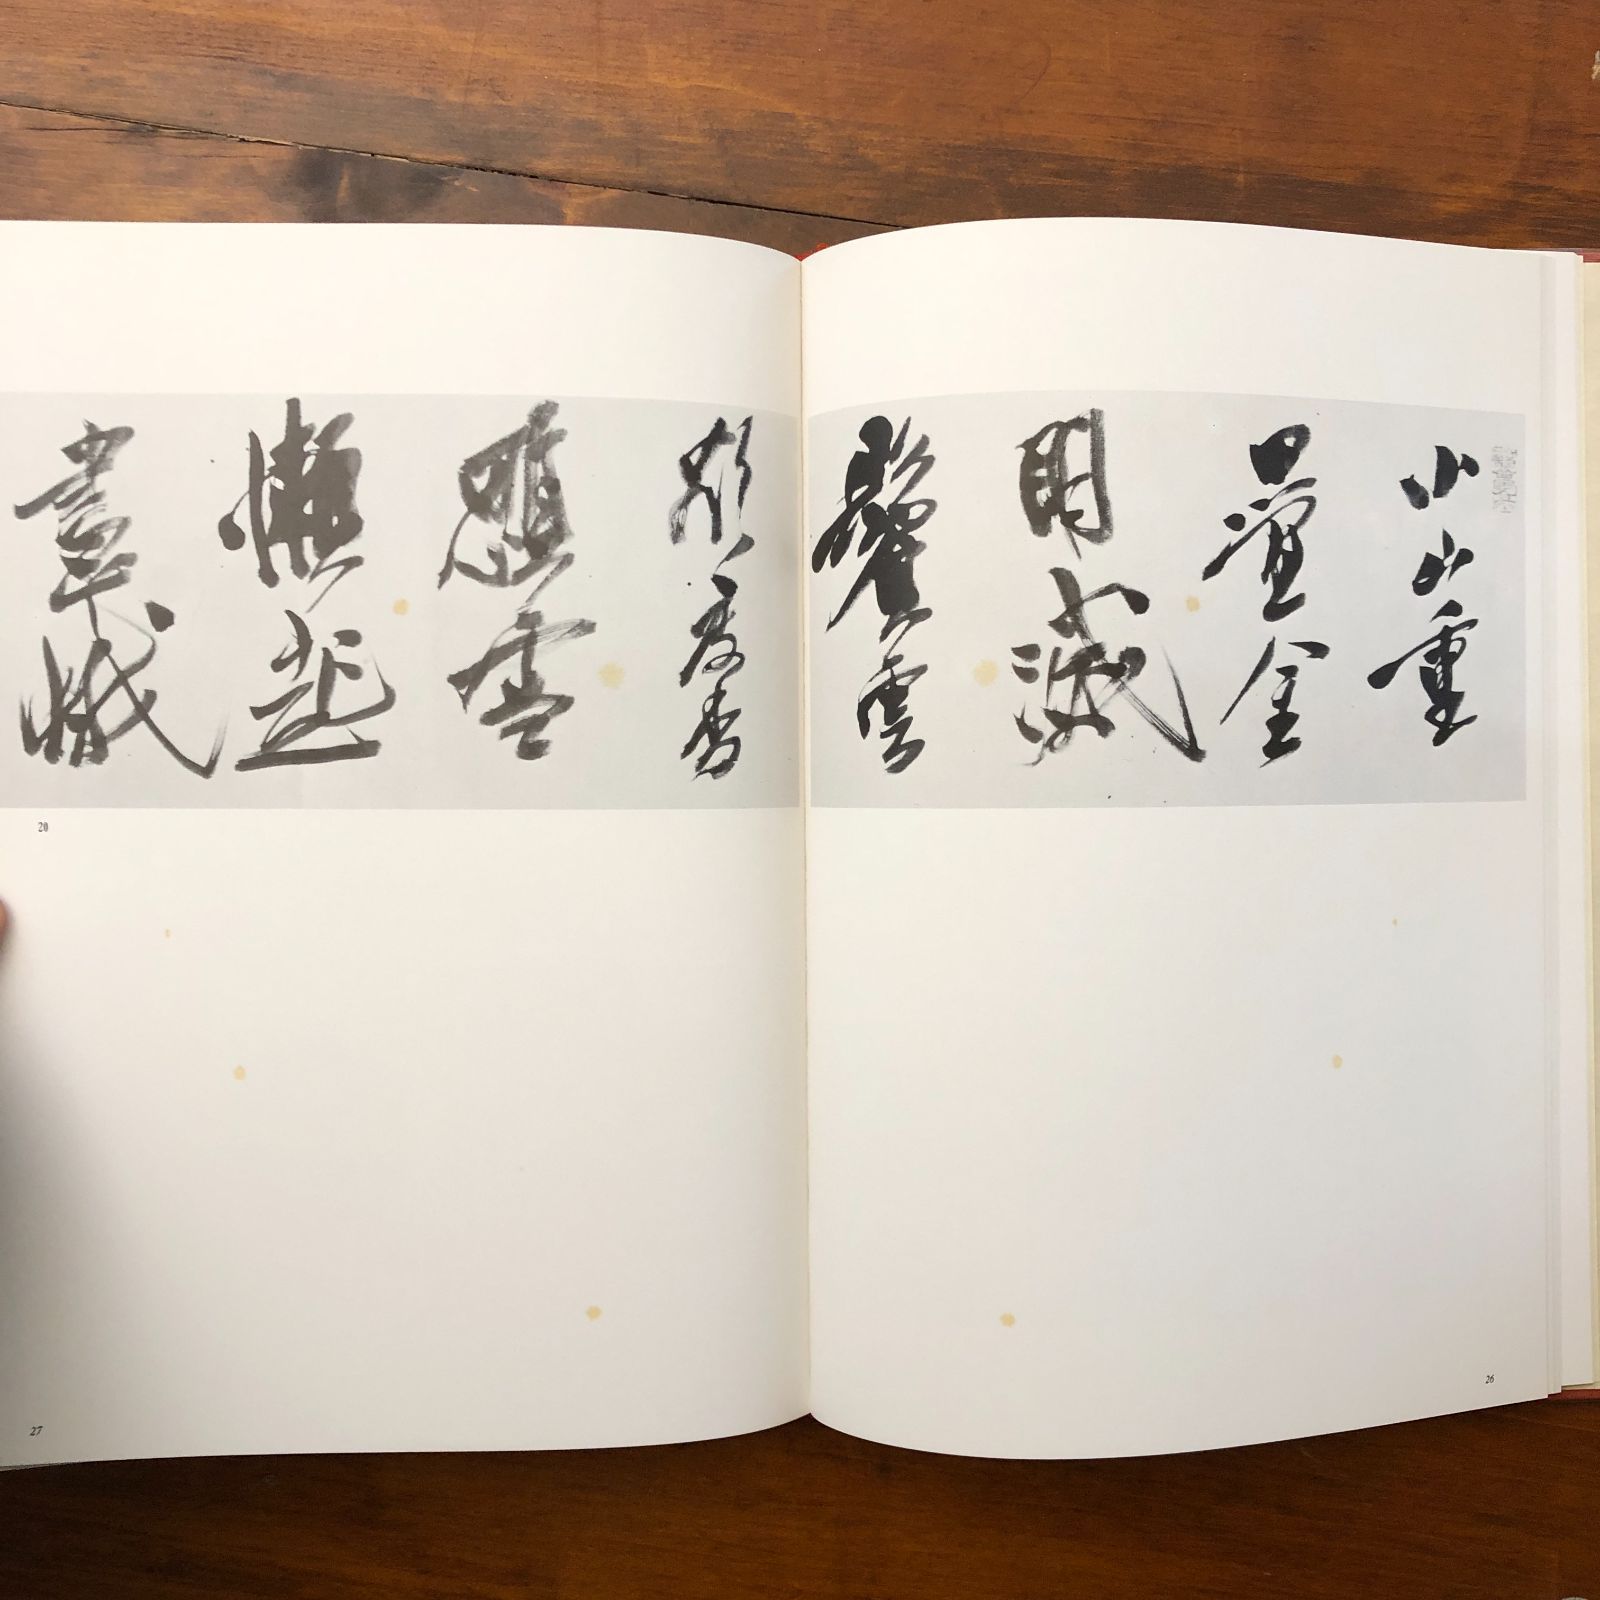 小山重
疊金
明滅
鬢雲
欲度香
腮雪
懶起
畫蛾
20
26
27